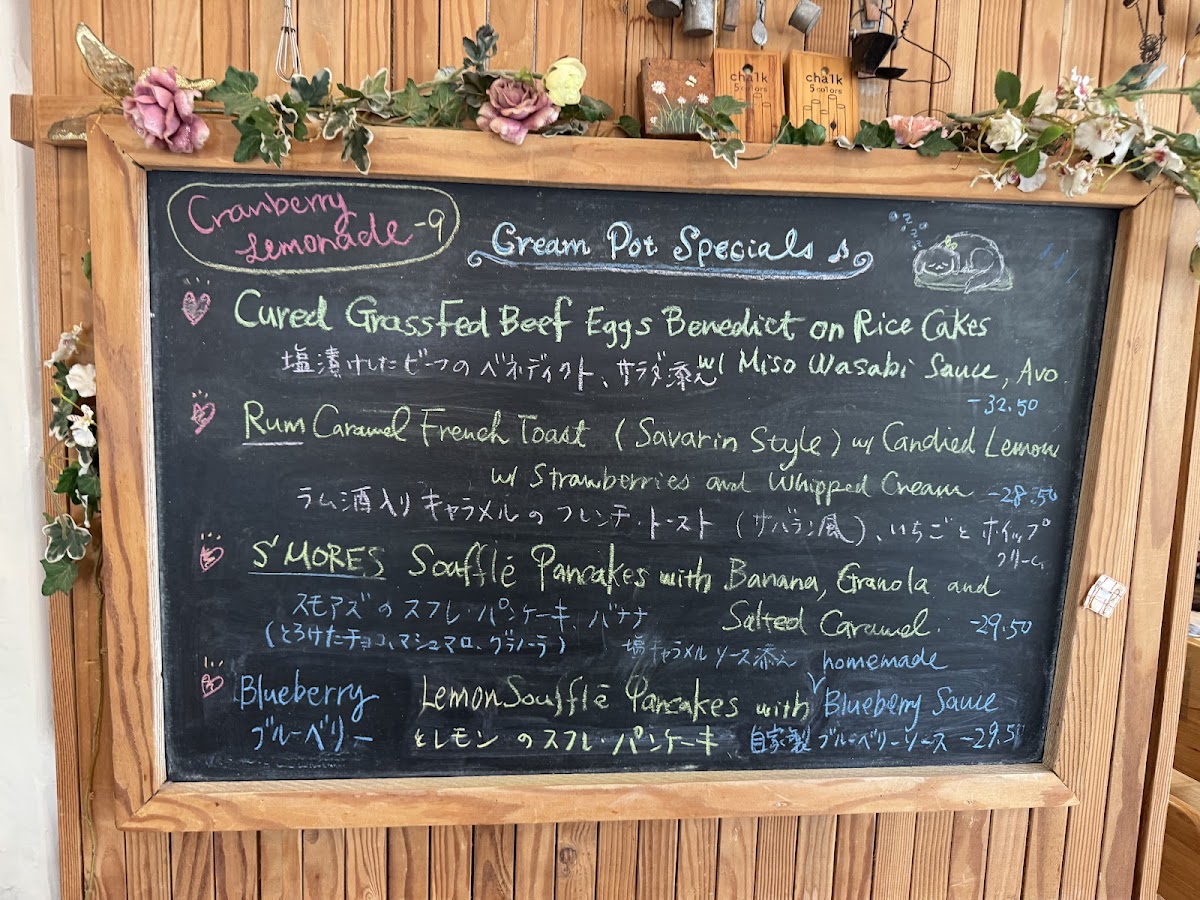 chalk
5 colors
chalk
5 colors
Cranberry
Lemonade -9
Cream Pot Specials ♪
Cured Grassfed Beef Eggs Benedict on Rice Cakes
塩漬けしたビーフのベネディクト、サラダ添え w/ Miso Wasabi Sauce, Avo.
-32.50
Rum Caramel French Toast (Savarin Style) w/ Candied Lemon
w/ Strawberries and Whipped Cream -28.50
ラム酒入りキャラメルのフレンチ・トースト (サバラン風)、いちごとホイップ
クリーム
S'MORES Soufflé Pancakes with Banana, Granola and
Salted Caramel. -29.50
スモアズのスフレ・パンケーキ、バナナ
(とろけたチョコ、マシュマロ、グラノーラ) 塩キャラメルソース添え
homemade
Blueberry Lemon Soufflé Pancakes with Blueberry Sauce
ブルーベリー とレモンのスフレ・パンケーキ 自家製ブルーベリーソース -29.5